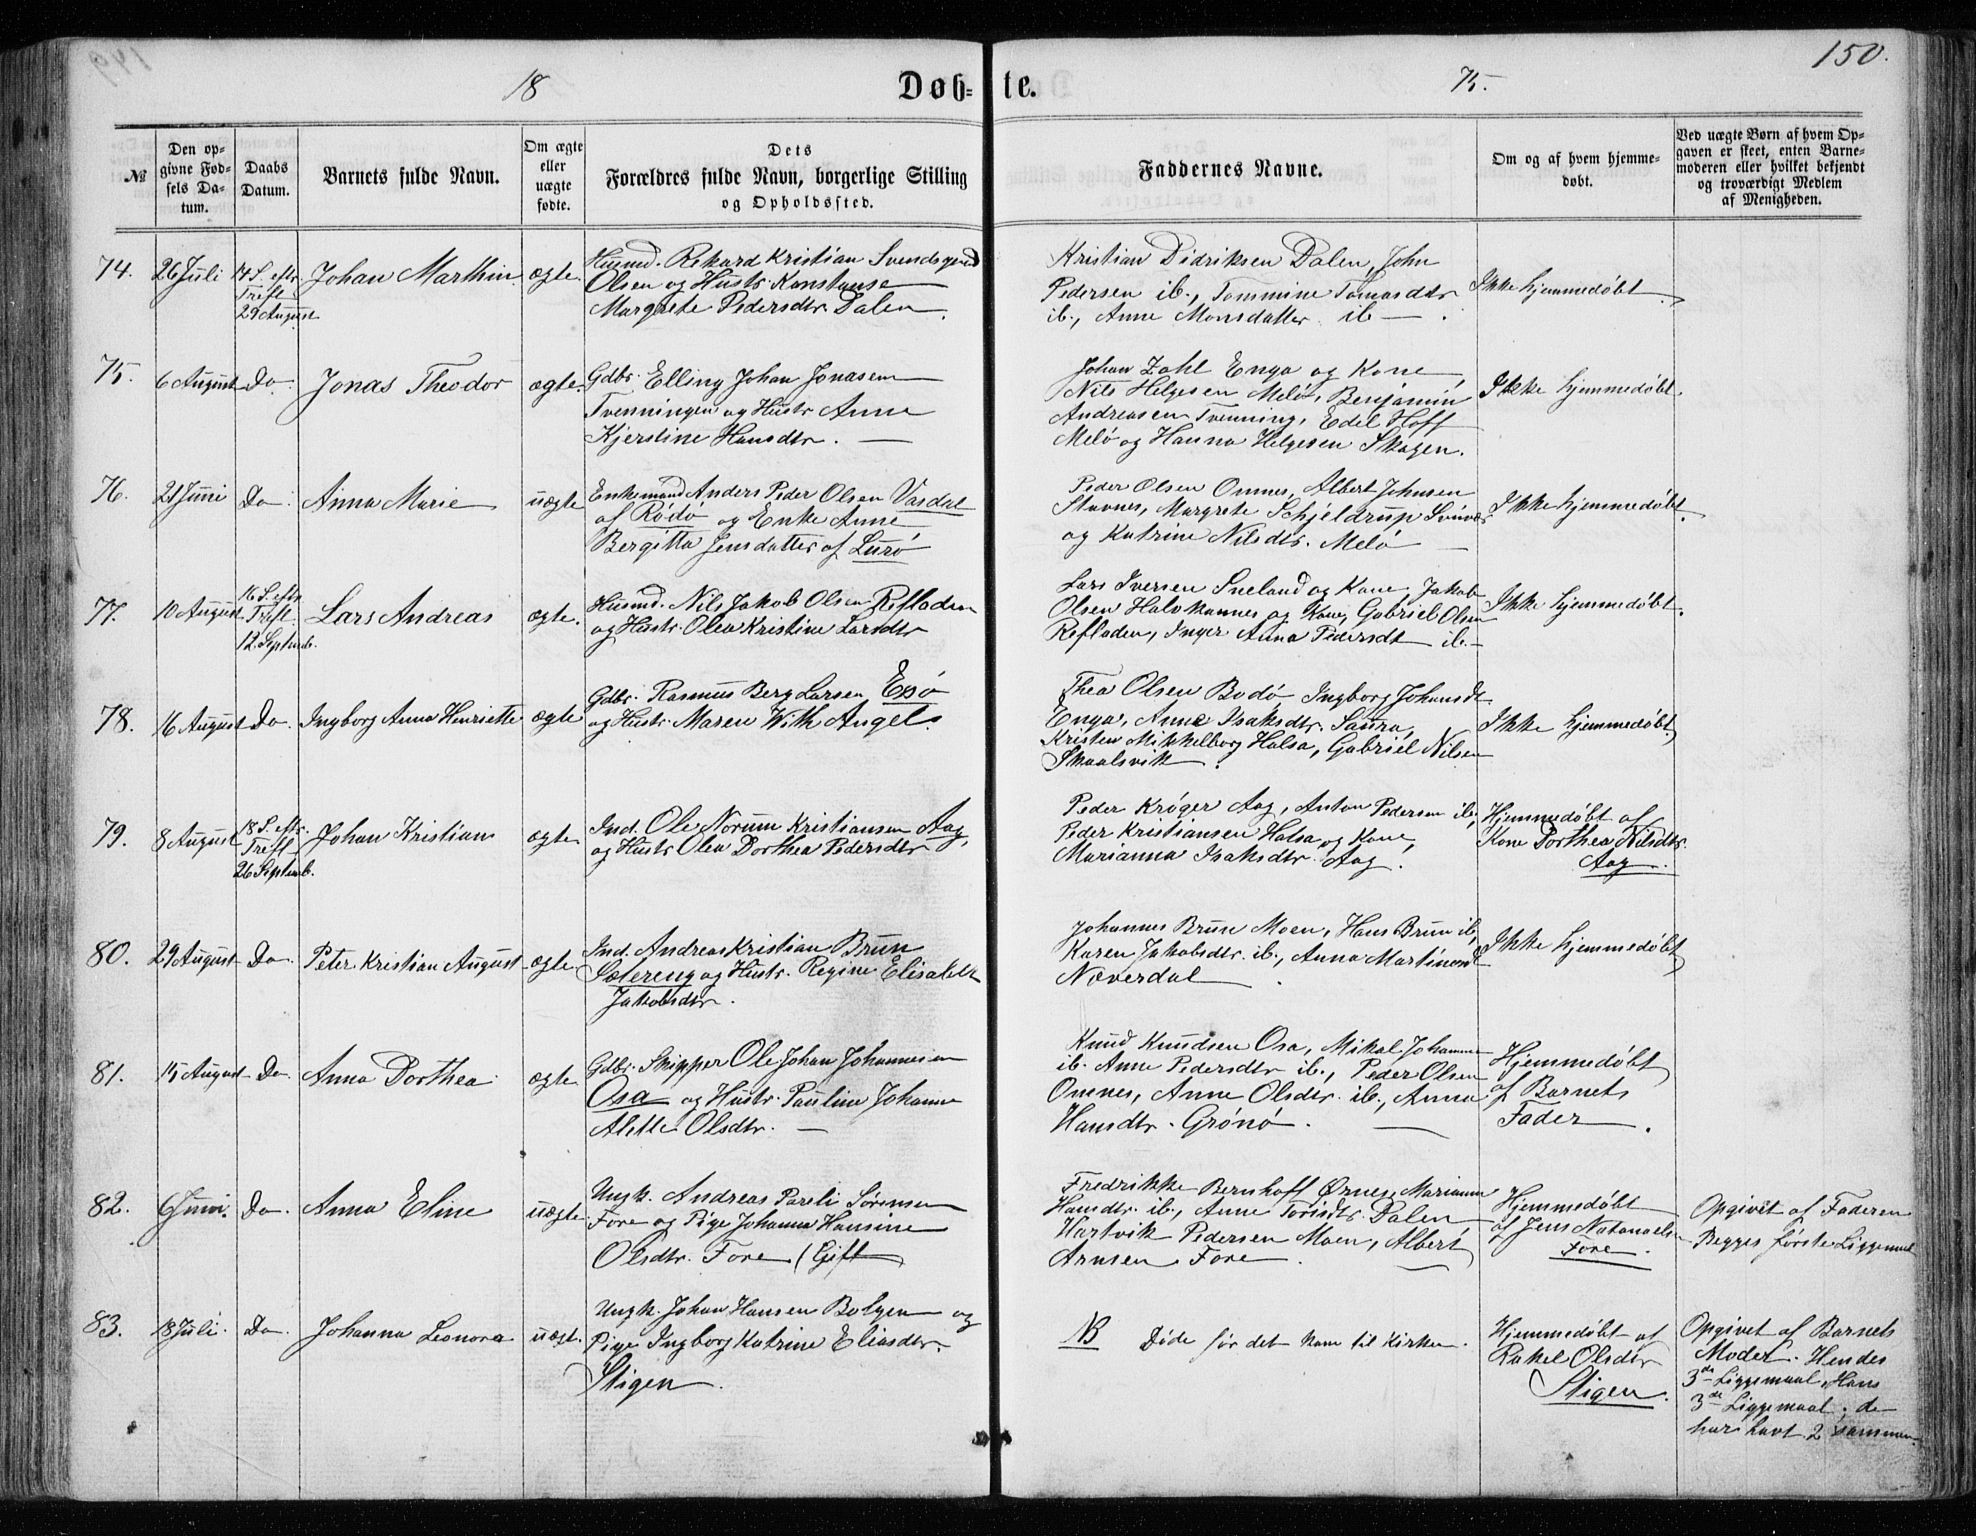 149
150.
18
Døb-
te.
75.
№
Den op-
givne Fød-
sels Da-
tum.
Daabs
Datum.
Barnets fulde Navn.
Om ægte
eller
uægte
fødte.
Dets
Forældres fulde Navn, borgerlige Stilling
og Opholdssted.
Faddernes Navne.
Om og af hvem hjemme-
døbt.
Ved uægte Børn af hvem Op-
gaven er skeet, enten Barne-
moderen eller hvilket bekjendt
og troværdigt Medlem
af Menigheden.
74.
26 Juli
14 S. eftr.
Tref.
29 August
Johan Marthin
ægte.
Husmd. Rikard Kristian Svendsgend
Olsen og Hustr. Konstanse
Margrete Pedersdtr. Dalen.
Kristian Didriksen Dalen, John
Pedersen ib., Tommine Tomasdtr
ib., Anne Monsdatter ib — .
Ikke hjemmedøbt
75.
6 August
Do.
Jonas Theodor
ægte.
Gdbr. Elling Johan Jonasen
Tvenningen og Hustr Anne
Kjerstine Hansdtr. —
Johan Zahl Enga og Kone,
Nils Helgesen Melø, Benjamin
Andreasen Tvenning, Edel Hoff
Melø og Hanna Helgesen Skagen.
Ikke hjemmedøbt
76.
21 Juni
Do.
Anna Marie
uægte
Enkemand Anders Peder Olsen Vasdal
af Rødø og Enke Anne
Bergitta Jensdatter af Lurø
Peder Olsen Omnes, Albert Johnsen
Stavnes, Margrete Schjeldrup Svinvær
og Katrine Nilsdtr. Melø
Ikke hjemmedøbt.
77.
10 August
16 S. eftr
Tref.
12 Septemb.
Lars Andreas
ægte.
Husmd. Nils Jakob Olsen Refladen
og Hustr. Olea Kristine Larsdtr
Lars Iversen Sneland og Kone, Jakob
Olsen Halvkannes og Kone, Gabriel Olsen
Refladen, Inger Anna Pedersdt ib.—
Ikke hjemmedøbt.
78.
16 August
Do.
Ingborg Anna Henriette
ægte
Gdbr. Rasmus Berg Larsen Esø
og Hustr. Maren With Angel.
Thea Olsen Bodø Ingborg Johansdt
Enga, Anne Isaksdtr. Saura,
Kristen Mikkelborg Halsa, Gabriel Nilsen
Skaalsvik.
Ikke hjemmedøbt
79.
8 August
18 S. eftr.
Tref.
26 Septemb.
Johan Kristian
ægte
Ind. Ole Norum Kristiansen Aag,
og Hustr Olea Dorthea Pedersdtr
Peder Krøger Aag, Anton Pedersen ib.,
Peder Kristiansen Halsa og Kone,
Marianna Isaksdtr. Aag.
Hjemmedøbt af
Kone Dorthea Nilsdtr.
Aag.
80.
29 August
Do.
Peter Kristian August
ægte
Ind. Andreas Kristian Brun
Sætereng og Hustr. Regine Elisabeth
Jakobsdtr.
Johannes Brun Moen, Hans Brun ib.,
Karen Jakobsdtr. ib., Anna Martinsdt
Næverdal.
Ikke hjemmedøbt
81.
15 August
Do.
Anna Dorthea
ægte
Gdbr. Skipper Ole Johan Johannesen
Osa og Hustr. Pauline Johanna
Alette Olsdtr. —
Knud Knudsen Osa, Mikal Johannes
ib. Anne Pedersdtr ib., Peder Olsen
Omnes, Anne Olsdtr. ib., Anna
Hansdtr. Grønø. —
Hjemmedøbt
af Barnets
Fader.
82.
6 Juni.
Do.
Anna Eline
uægte
Ungk. Andreas Pareli Sørensen
Fore og Pige Johanna Hansine
Olsdtr. Fore (Gift
Fredrikke Bernhoft Ørnes, Marianna
Hansdtr. ib., Anne Torisdtr. Dalen
Hartvik Pedersen Moen, Albert
Arnsen Fore.
Hjemmedøbt
af Jens Natanaels-
Fore.
Opgivet af Faderen
Begges første Liggemaal
83.
18 Juli.
Do.
Johanna Leonora
uægt.
Ungk. Johan Hansen Bolgen og
Pige Ingborg Katrine Eliasdtr.
Stigen.
NB Døde før det kom til Kirken.
Hjemmedøbt af
Rakel Olsdtr
Stigen.
Opgivet af Barnets
Moder. Hendes
3de Liggemaal, Hans
3de Liggemaal; de
har havt 2 sammen.